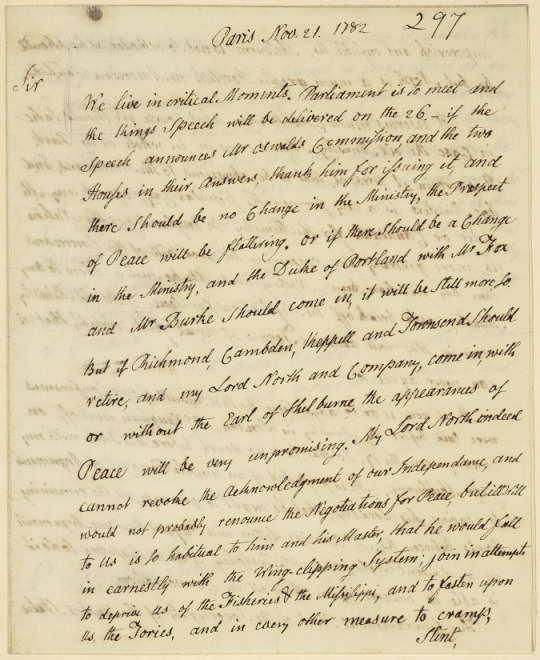 Paris Nov. 21. 1782 297
Sir
We live in critical Moments. Parliament is to meet and
the Kings Speech will be delivered on the 26.– if the
Speech announces Mr Oswalds Commission and the two
Houses in their answers, thank him for issuing it, and
there should be no Change in the Ministry, the Prospect
of Peace will be flattering. or if there should be a Change
in the Ministry, and the Duke of Portland with Mr Fox
and Mr Burke should come in, it will be still more so.
But if Richmond, Cambden, Keppell and Townsend should
retire, and my Lord North and Company, come in, with
or without the Earl of Shelburne, the appearances of
Peace will be very unpromising. My Lord North indeed
cannot revoke the acknowledgment of our Independance, and
would not probably renounce the Negotiations for Peace, but ill will
to Us is so habitual to him and his Master, that he would fall
in earnestly with the Wing-clipping System: join in attempts
to deprive us of the Fisheries & the Missisippi, and to fasten upon
us, the Tories, and in every other measure to cramp,
stint,